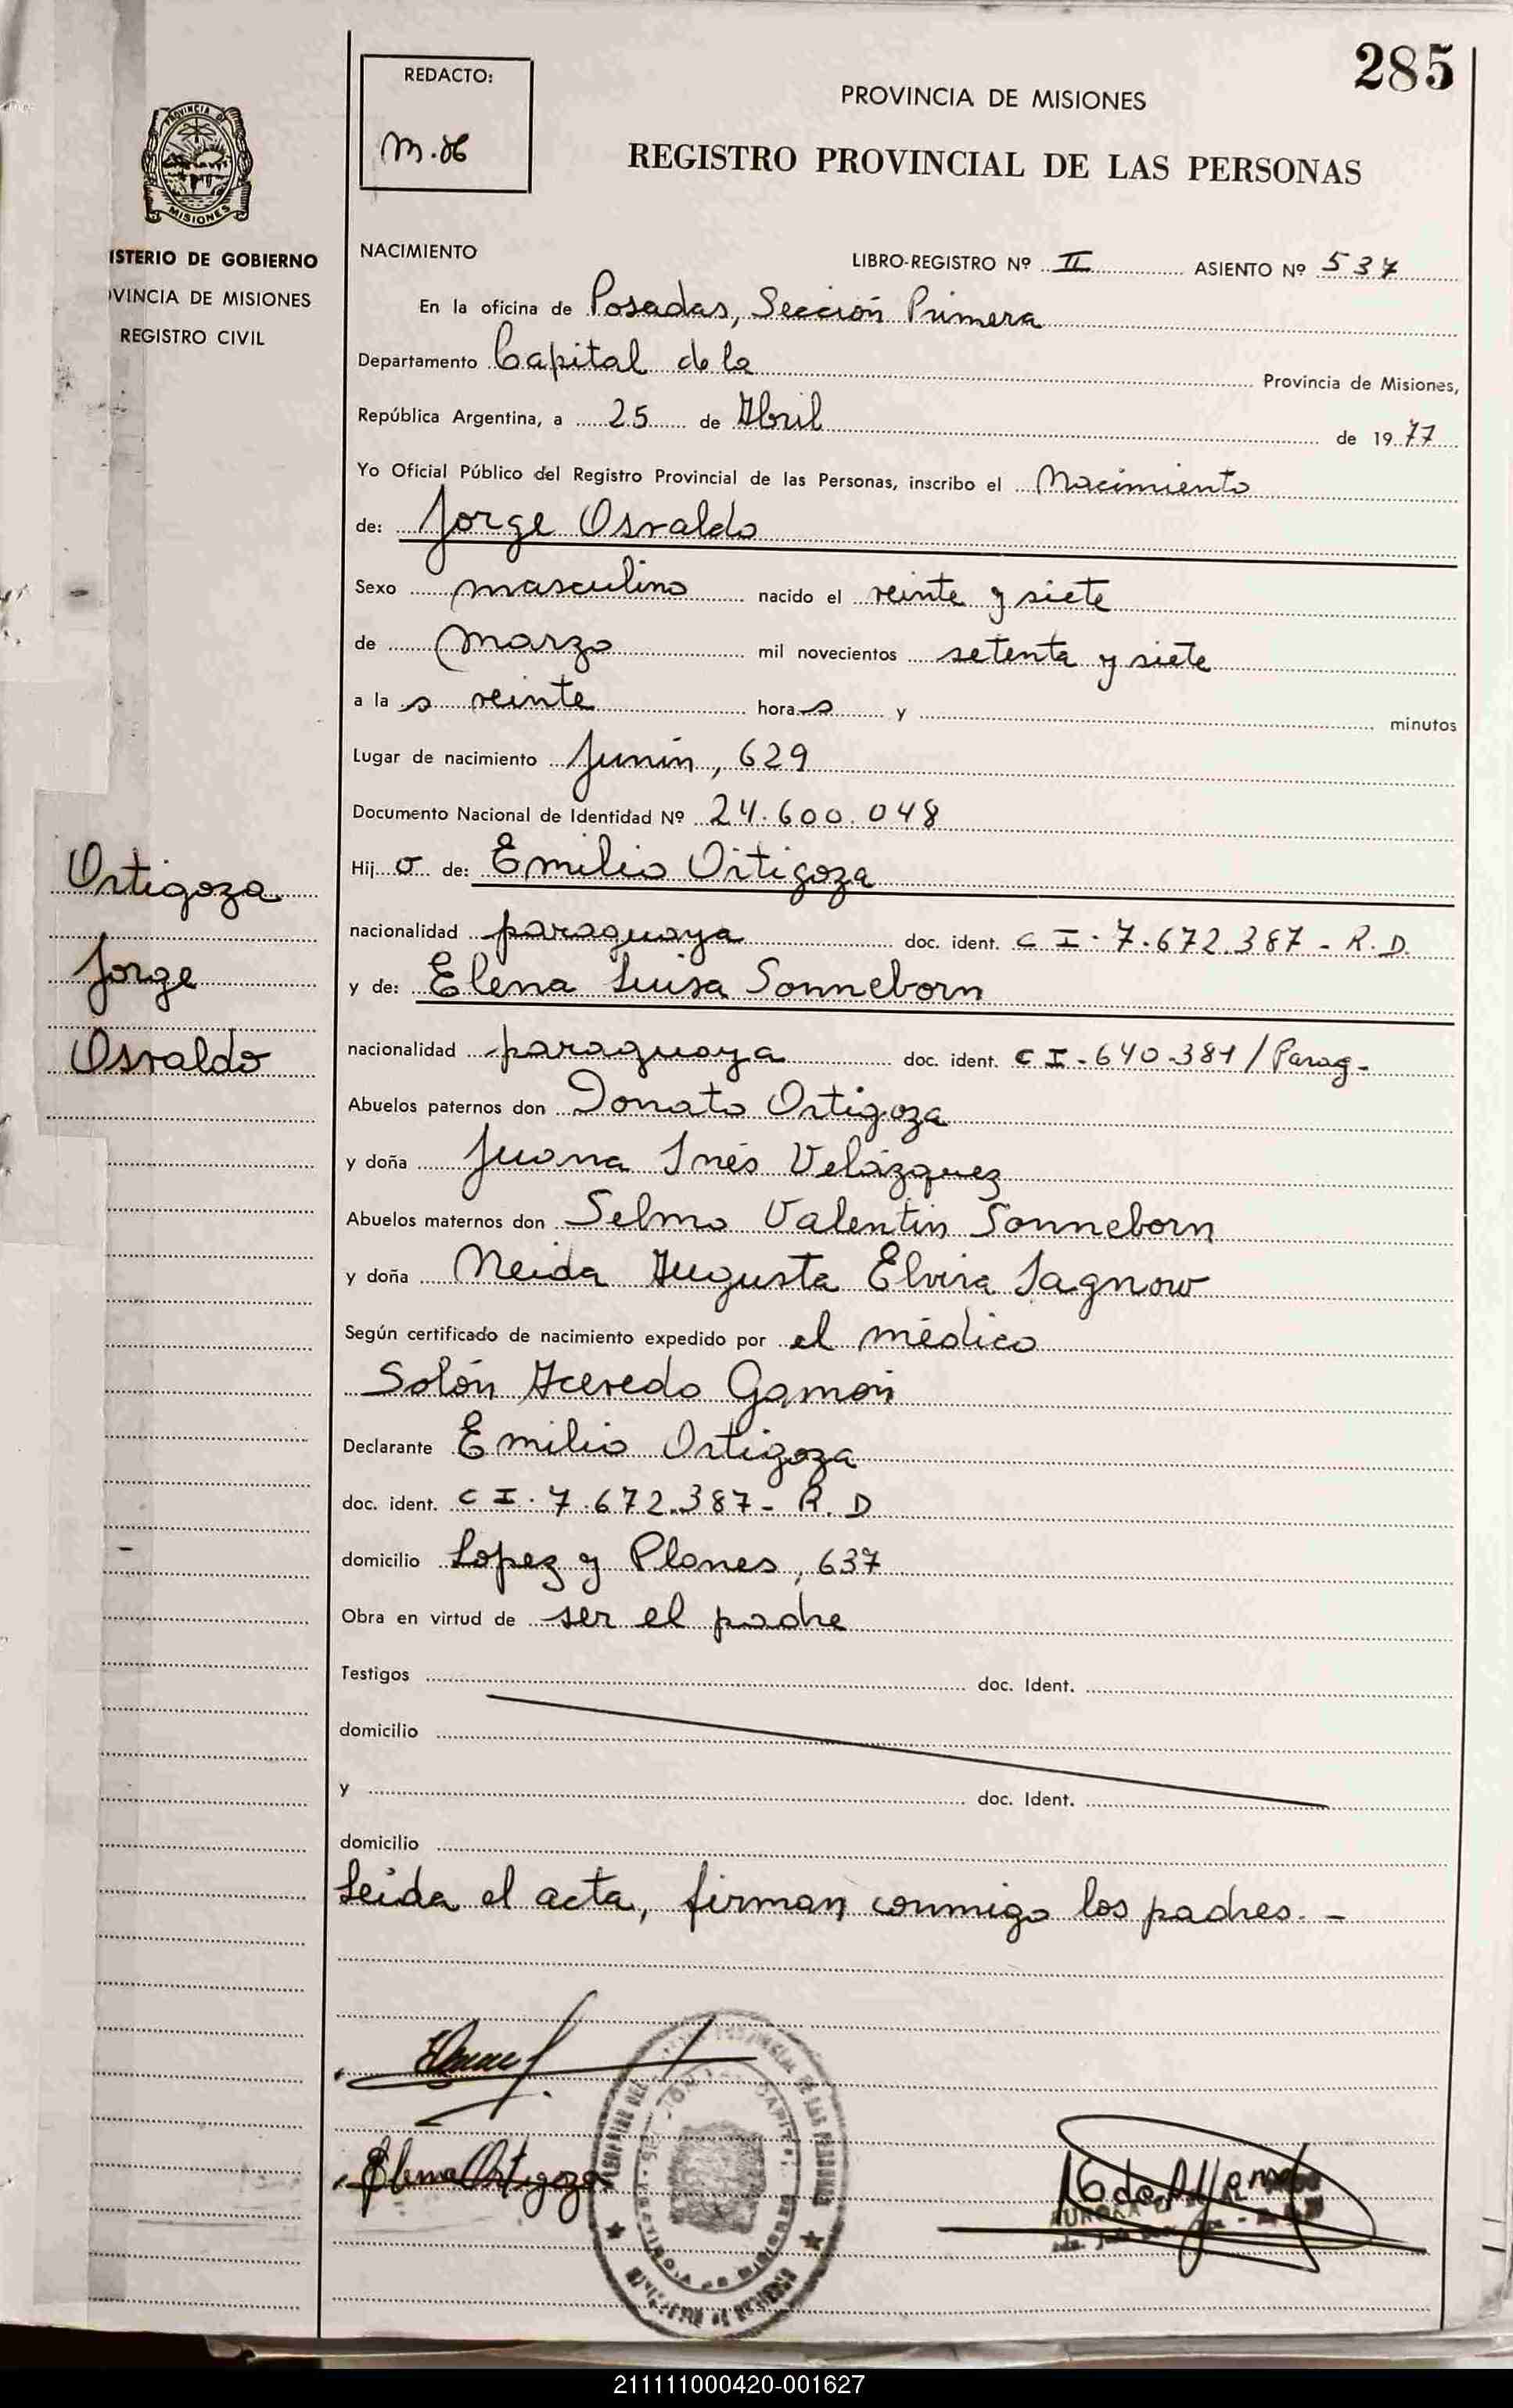 285
REDACTO:
M.
PROVINCIA DE MISIONES
REGISTRO PROVINCIAL DE LAS PERSONAS
PROVINCIA D
MISIONES
ISTERIO DE GOBIERNO
OVINCIA DE MISIONES
REGISTRO CIVIL
NACIMIENTO LIBRO-REGISTRO Nº II ASIENTO Nº 537
En la oficina de Posadas, Sección Primera
Departamento Capital de la Provincia de Misiones,
República Argentina, a 25 de Abril de 1977
Yo Oficial Público del Registro Provincial de las Personas, inscribo el Nacimiento
de: Jorge Osvaldo
Sexo masculino nacido el veinte y siete
de Marzo mil novecientos setenta y siete
a la s veinte hora s y minutos
Lugar de nacimiento Junín, 629
Documento Nacional de Identidad Nº 24.600.048
Hij o de: Emilio Ortigoza
nacionalidad paraguaya doc. ident. C I. 7.672.387 - R.D.
y de: Elena Luisa Sonneborn
nacionalidad paraguaya doc. ident. C I - 640.381 / Parag -
Abuelos paternos don Donato Ortigoza
y doña Juana Inés Velázquez
Abuelos maternos don Selmo Valentín Sonneborn
y doña Neida Augusta Elvira Jagnow
Según certificado de nacimiento expedido por el médico
Solón Acevedo Gamón
Declarante Emilio Ortigoza
doc. ident. C I. 7.672.387 - R.D
domicilio Lopez y Planes, 637
Obra en virtud de ser el padre
Testigos doc. Ident.
domicilio
y doc. Ident.
domicilio
Leída el acta, firman conmigo los padres. -
Ortigoza
Jorge
Osvaldo
Elena Ortigoza
211111000420-001627